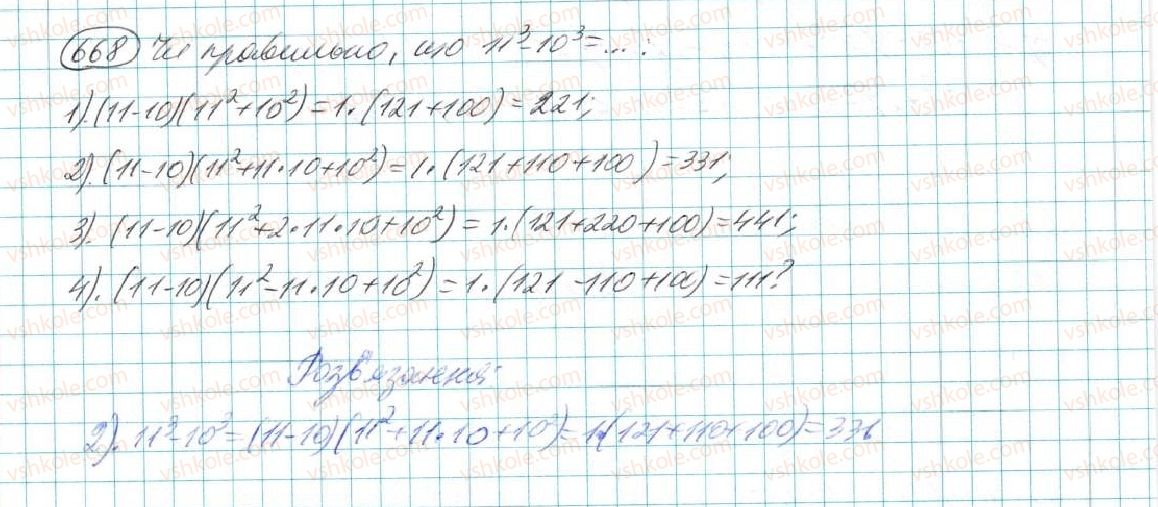 668 Чи правильно, що 11³-10³=...:
1).(11-10)(11²+10²)=1·(121+100)=221;
2).(11-10)(11²+11·10+10²)=1·(121+110+100)=331;
3).(11-10)(11²+2·11·10+10²)=1·(121+220+100)=441;
4).(11-10)(11²-11·10+10²)=1·(121-110+100)=111?
Розв'язання:
2).11³-10³=(11-10)(11²+11·10+10²)=1·(121+110+100)=331